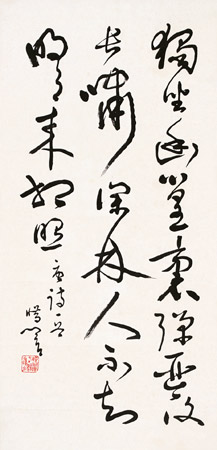 獨坐幽篁裏彈琴復
長嘯深林人不知
明月来相照唐詩一首